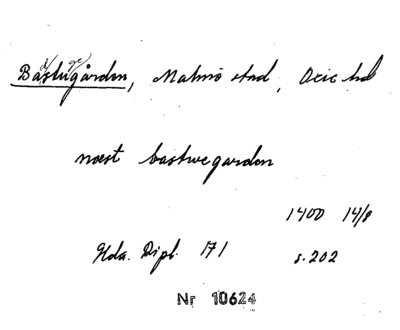 Bastugården, Malmö stad, Oxie hd
næst bastwegarden
1400 14/8
Hda. Dipl. 171 s. 202
Nr 10624